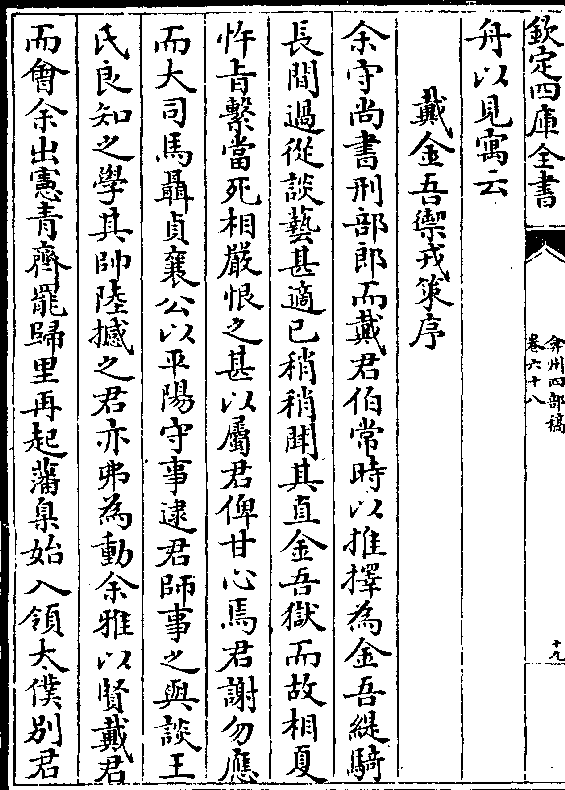 欽定四庫全書
弇州四部稿
卷六十八
十九
舟以見寓云
戴金吾禦戎策序
余守尚書刑部郎而戴君伯常時以推擇為金吾緹騎
長間過從談藝甚適已稍稍聞其直金吾獄而故相夏
忤㫖繫當死相嚴恨之甚以屬君俾甘心焉君謝勿應
而大司馬聶貞襄公以平陽守事逮君師事之與談王
氏良知之學其帥陸撼之君亦弗為動余雅以賢戴君
而會余出憲青齊罷歸里再起藩臬始入領太僕別君